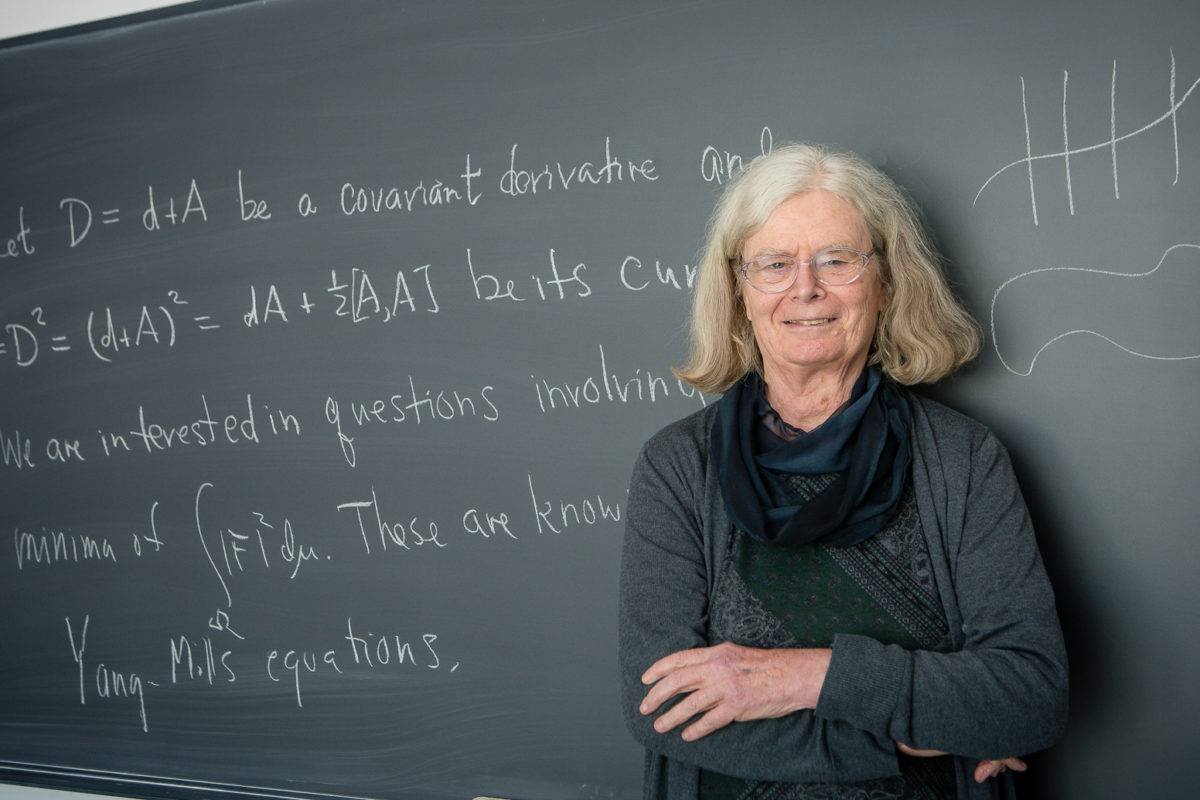 Let D = d+A be a covariant derivative and
=D² = (d+A)² = dA + ½[A,A] be its cur
We are interested in questions involving
minima of ∫|F|²dμ. These are know
Ω
Yang-Mills equations.